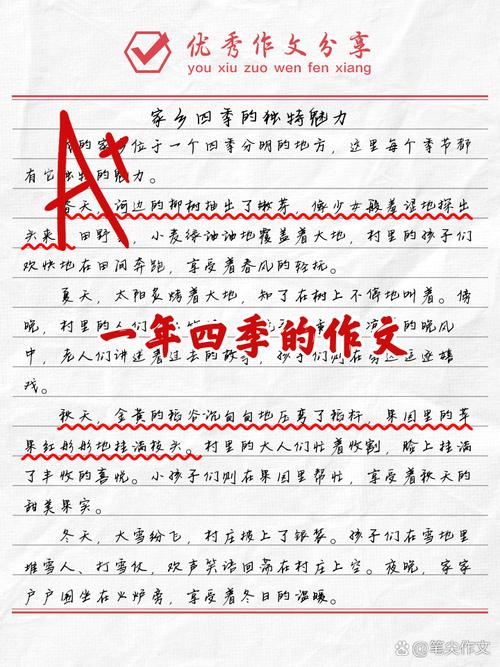 优秀作文分享
you xiu zuo wen fen xiang
家乡四季的独特魅力
A+
的家 位于一个四季分明的地方，这里每个季节都
有它独特的魅力。
春天，河边的柳树抽出了嫩芽，像少女般羞涩地探出
头来 田野 ，小麦绿油油地覆盖着大地，村里的孩子们
欢快地在田间奔跑，享受着春风的轻抚。
夏天，太阳炙烤着大地，知了在树上不停地叫着。傍
晚，村里的人们 的晚风
一年四季的作文
中，老人们讲述着过去的故事，孩子们则在 嬉
戏。
秋天，金黄的稻谷沉甸甸地压弯了稻杆，果园里的苹
果红彤彤地挂满枝头。村里的大人们忙着收割，脸上挂满
了丰收的喜悦。小孩子们则在果园里帮忙，享受着秋天的
甜美果实。
冬天，大雪纷飞，村庄披上了银装。孩子们在雪地里
堆雪人、打雪仗，欢声笑语回荡在村庄上空。夜晚，家家
户户围坐在火炉旁，享受着冬日的温暖。
笔尖作文